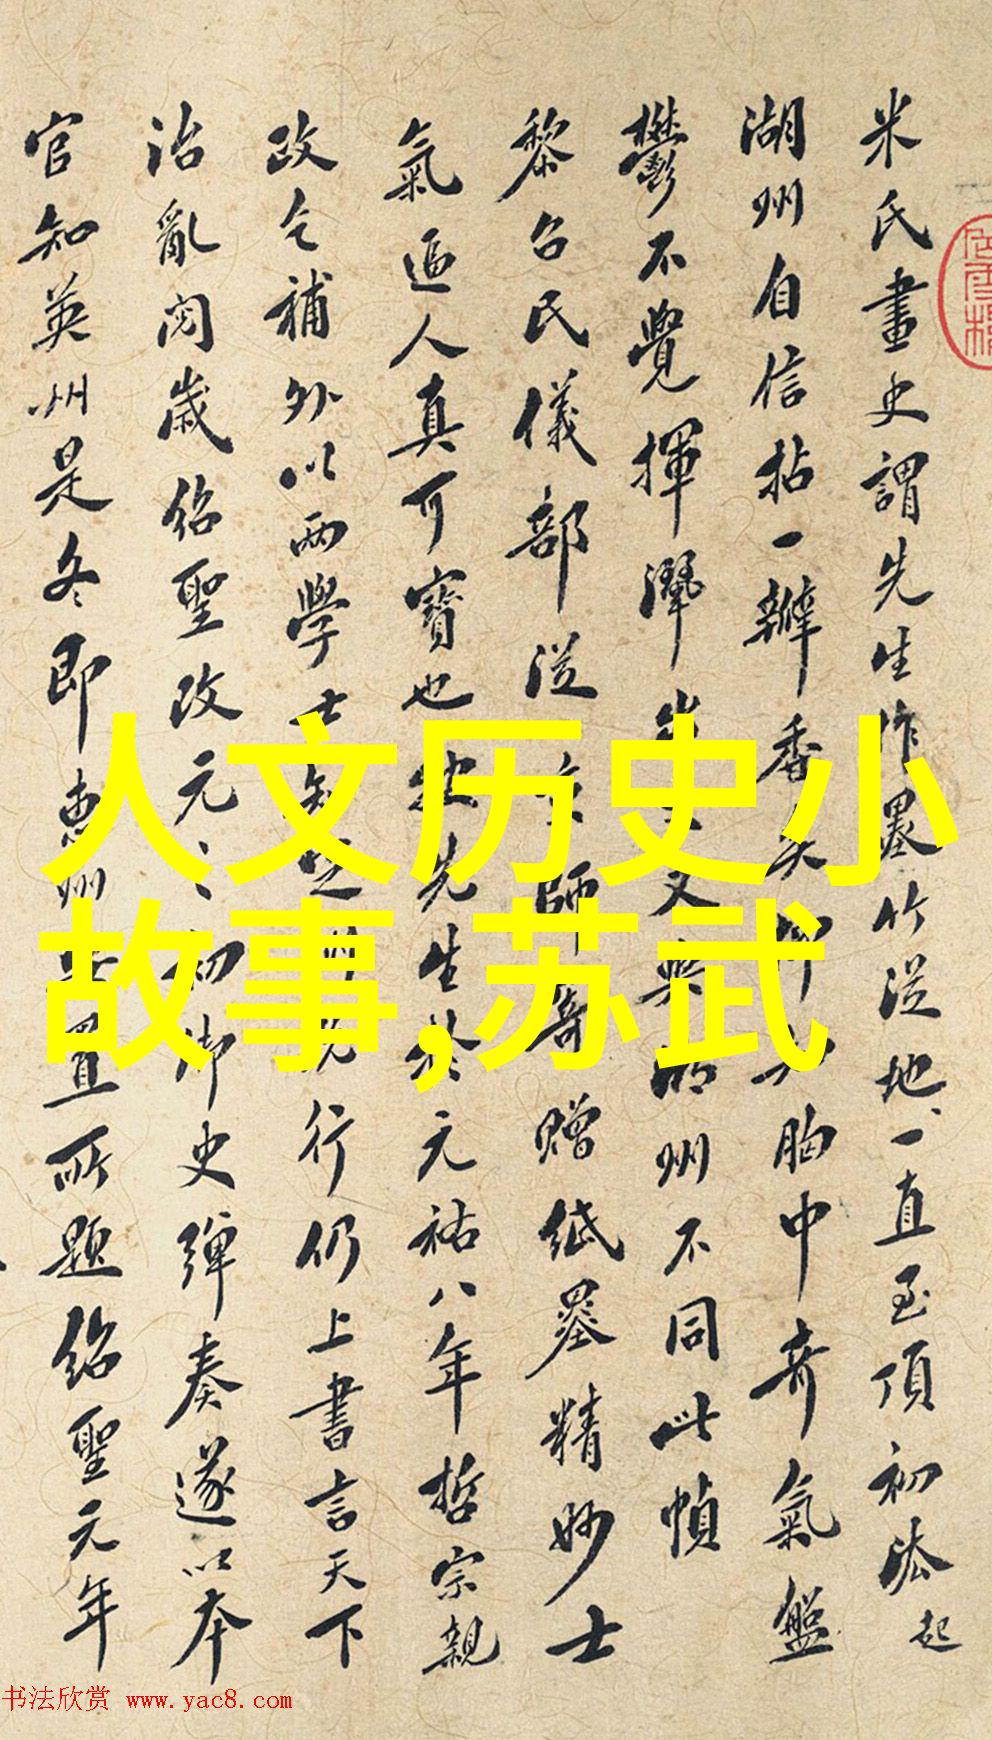 米氏畫史謂先生作墨竹從地一直至頂初法起
湖州自信拈一瓣香 胸中奇氣盤
鬱不覺揮灑 與湖州不同此幀
黎召民儀部從京師寄贈紙墨精妙士
氣逼人真可寶也 先生於元祐八年哲宗親
政乞補外以兩學士 行仍上書言天下
治亂閱歲紹聖改元之初御史彈奏遂以本
官知英州是冬即惠州 置所題紹聖元年
人文历史小
故事,苏武
书法欣赏 www.yac8.com